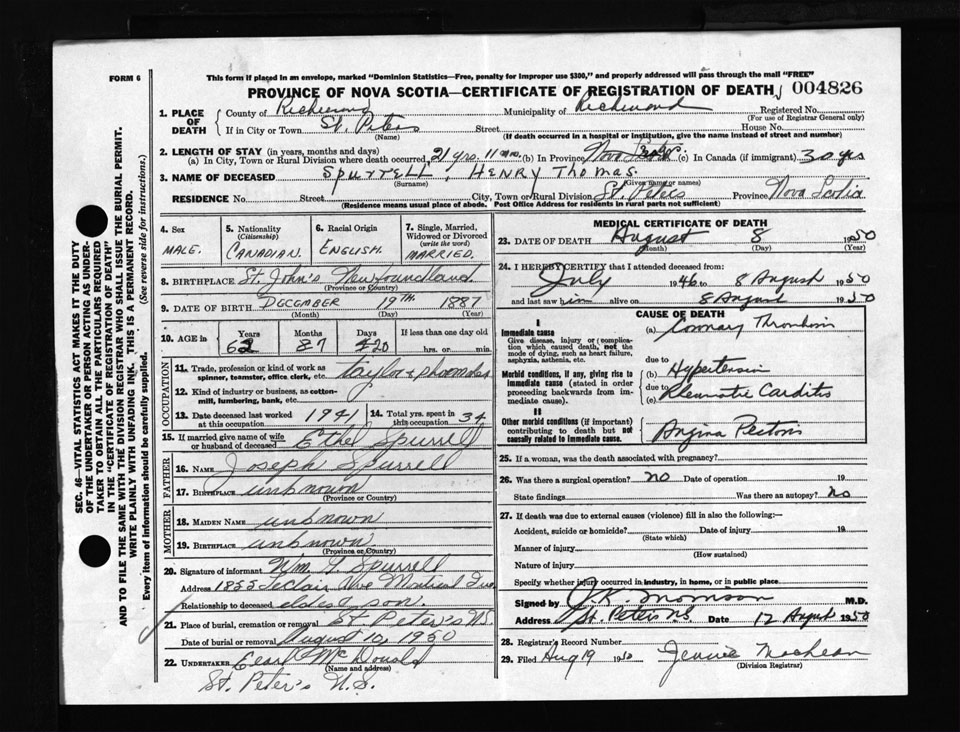 FORM 6
This form if placed in an envelope, marked "Dominion Statistics—Free, penalty for improper use $300," and properly addressed will pass through the mail "FREE"
PROVINCE OF NOVA SCOTIA—CERTIFICATE OF REGISTRATION OF DEATH 004826
1. PLACE OF DEATH
County of Richmond Municipality of Richmond Registered No.
(For use of Registrar General only)
If in City or Town St. Peters Street House No.
(Name) (If death occurred in a hospital or institution, give the name instead of street and number)
2. LENGTH OF STAY (in years, months and days)
(a) In City, Town or Rural Division where death occurred 21 yrs. 11 mo. (b) In Province Nova Scotia (c) In Canada (if immigrant) 30 yrs
3. NAME OF DECEASED SPURRELL, HENRY THOMAS.
(Surname) (Given name or names)
RESIDENCE No. Street City, Town or Rural Division St. Peters Province Nova Scotia
(Residence means usual place of abode. Post Office Address for residents in rural parts not sufficient)
4. Sex
MALE.
5. Nationality
(Citizenship)
CANADIAN.
6. Racial Origin
ENGLISH.
7. Single, Married, Widowed or Divorced
(write the word)
MARRIED.
8. BIRTHPLACE St. John's Newfoundland
(Province or Country)
9. DATE OF BIRTH DECEMBER 19TH 1887
(Month) (Day) (Year)
10. AGE in
Years Months Days If less than one day old
62 7 20 hrs. or min.
OCCUPATION
11. Trade, profession or kind of work as
spinner, teamster, office clerk, etc. taylor &
12. Kind of industry or business, as cotton-
mill, lumbering, bank, etc.
13. Date deceased last worked
at this occupation 1941
14. Total yrs. spent in
this occupation 34
15. If married give name of wife
or husband of deceased Ethel Spurrell
FATHER
16. NAME Joseph Spurrell
17. BIRTHPLACE unknown
(Province or Country)
MOTHER
18. MAIDEN NAME unknown
19. BIRTHPLACE unknown
(Province or Country)
20. Signature of informant Wm. Spurrell
Address 1855 Leclair Ave Montreal Que
Relationship to deceased eldest son.
21. Place of burial, cremation or removal St. Peter's N.S.
Date of burial or removal August 10, 1950
22. UNDERTAKER Earl McDonald
(Name and address)
St. Peter's N.S.
MEDICAL CERTIFICATE OF DEATH
23. DATE OF DEATH August 8 1950
(Month) (Day) (Year)
24. I HEREBY CERTIFY that I attended deceased from:
July 1946 to 8 August 1950
and last saw him alive on 8 August 1950
CAUSE OF DEATH
I
Immediate cause
Give disease, injury or complica-
tion which caused death, not the
mode of dying, such as heart failure,
asphyxia, asthenia, etc.
(a) Coronary Thrombosis
due to
Morbid conditions, if any, giving rise to
immediate cause (stated in order
proceeding backwards from im-
mediate cause).
(b) Hypertension
due to
(c) Rheumatic Carditis
II
Other morbid conditions (if important)
contributing to death but not
causally related to immediate cause.
Angina Pectoris
25. If a woman, was the death associated with pregnancy?
26. Was there a surgical operation? no Date of operation 19
State findings Was there an autopsy? No
27. If death was due to external causes (violence) fill in also the following:—
Accident, suicide or homicide? Date of injury 19
(State which)
Manner of injury
(How sustained)
Nature of injury
Specify whether injury occurred in industry, in home, or in public place
Signed by M.D.
Address St. Peters N.S. Date 12 August 1950
28. Registrar's Record Number
29. Filed Aug 19 1950 Jennie MacLean
(Division Registrar)
SEC. 46—VITAL STATISTICS ACT MAKES IT THE DUTY
OF THE UNDERTAKER OR PERSON ACTING AS UNDER-
TAKER TO OBTAIN ALL THE PARTICULARS REQUIRED
IN THE "CERTIFICATE OF REGISTRATION OF DEATH"
AND TO FILE THE SAME WITH THE DIVISION REGISTRAR WHO SHALL ISSUE THE BURIAL PERMIT.
WRITE PLAINLY WITH UNFADING INK. THIS IS A PERMANENT RECORD.
Every item of information should be carefully supplied. (See reverse side for instructions.)